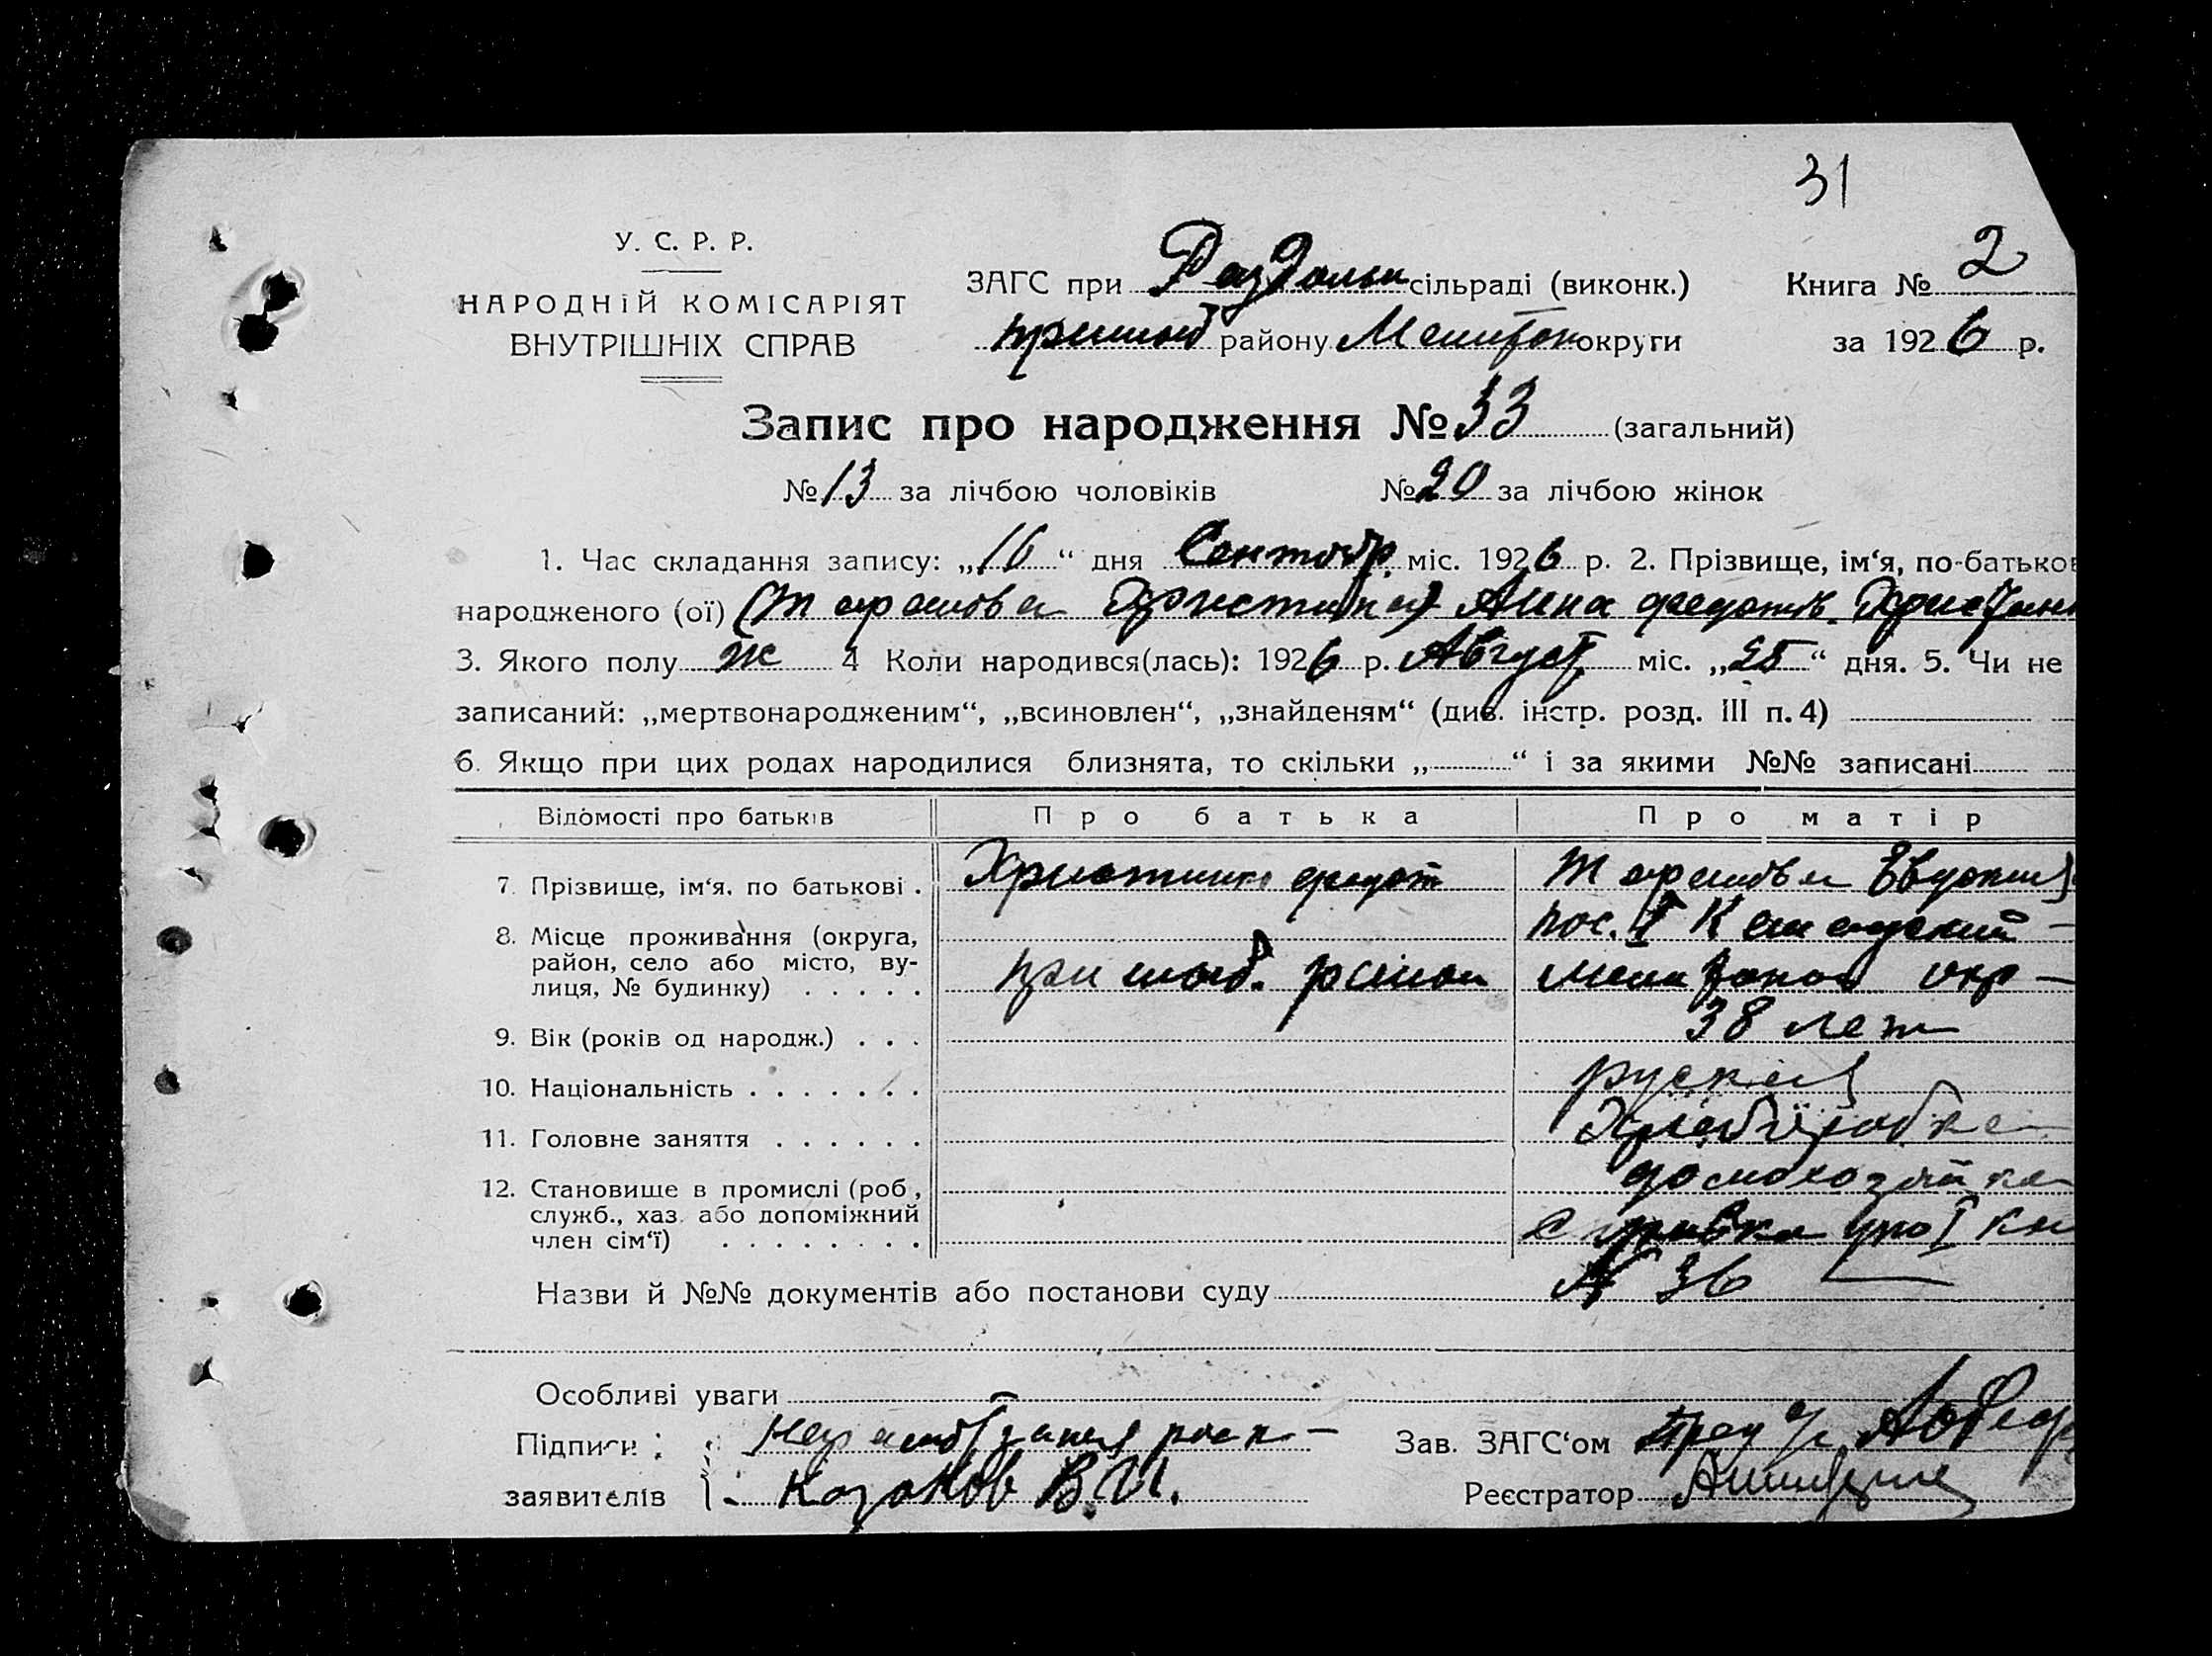 31
У. С. Р. Р.
НАРОДНІЙ КОМІСАРІЯТ
ВНУТРІШНІХ СПРАВ
ЗАГС при Раздольн сільраді (виконк.)
пришиб району Мелитоп округи
Книга № 2
за 1926 р.
Запис про народження № 33 (загальний)
№ 13 за лічбою чоловіків № 20 за лічбою жінок
1. Час складання запису: „16“ дня Сентябр. міс. 1926 р. 2. Прізвище, ім‘я, по-батьков
народженого (ої) Анна
3. Якого полу ж 4 Коли народився(лась): 1926 р. Август міс. „25“ дня. 5. Чи не
записаний: „мертвонародженим“, „всиновлен“, „знайденям“ (див. інстр. розд. III п. 4)
6. Якщо при цих родах народилися близнята, то скільки „ “ і за якими №№ записані
Відомості про батьків Про батька Про матір
7. Прізвище, ім‘я, по батькові . федот
8. Місце проживання (округа,
район, село або місто, ву-
лиця, № будинку) . . . . .
пришиб. район
пос.
окр –
9. Вік (років од народж.) . . . 38 лет
10. Національність . . . . . . . руская
11. Головне заняття . . . . . . Хлеборобка
12. Становище в промислі (роб,
служб., хаз. або допоміжний
член сім‘ї) . . . . . . . .
домохозяйка
Назви й №№ документів або постанови суду № 36
Особливі уваги
Підписи
заявителів
Казаков В. И.
Зав. ЗАГС‘ом
Реєстратор